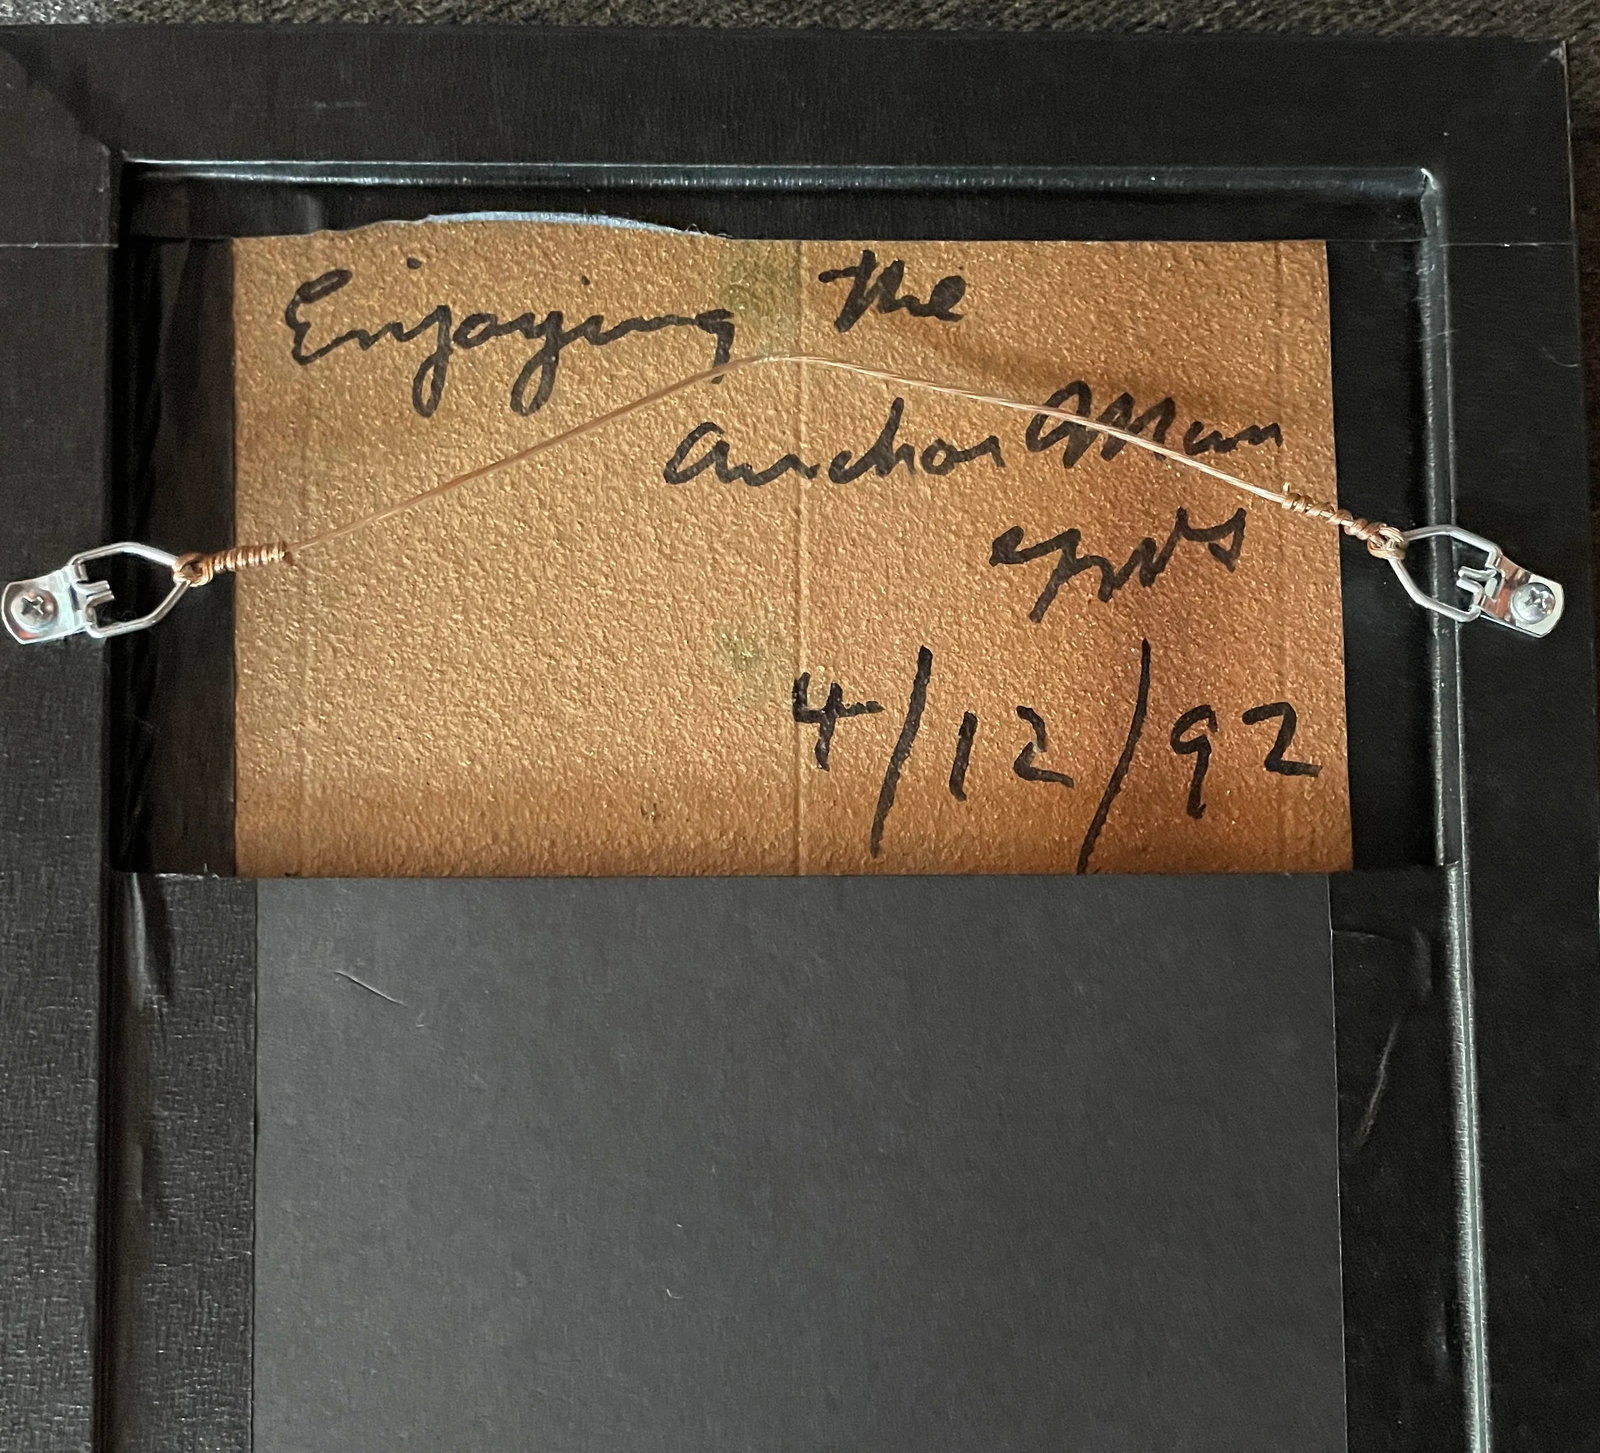 Enjoying the
anchor Man
4/12/92